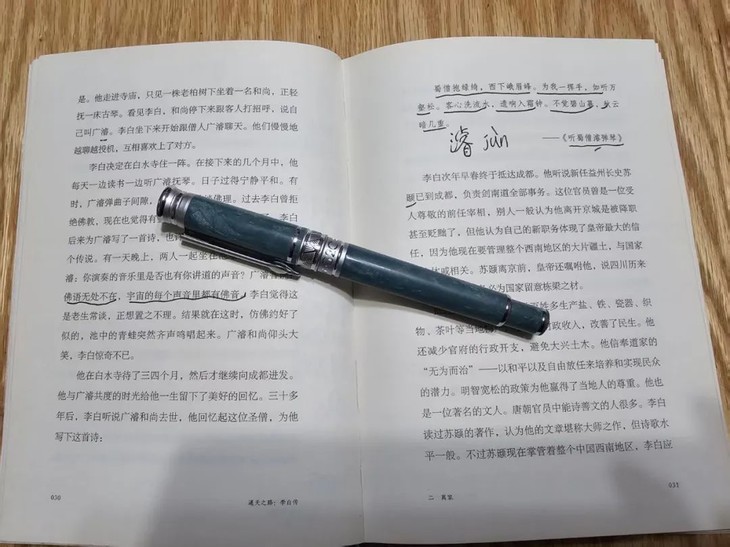 是。他走进寺庙，只见一株老柏树下坐着一名和尚，正轻
抚一床古琴。看见李白，和尚停下来跟客人打招呼，说自
己叫广濬。李白坐下来开始跟僧人广濬聊天。他们慢慢地
越聊越投机，互相喜欢上了对方。
李白决定在白水寺住一阵。在接下来的几个月中，他
每天一边读书一边听广濬抚琴。日子过得宁静平和。有
时，广濬弹曲子间隙，佛理。过去李白曾拒
绝佛教，现在也觉得有李白
后来为广濬写了一首诗，也
个传说。有一天晚上，两人一起坐在
濬：你演奏的音乐里是否也有你讲道的声音？广濬
佛语无处不在，宇宙的每个声音里都有佛音。李白觉得这
是老生常谈，正想置之不理。结果就在这时，仿佛约好了
似的，池中的青蛙突然齐声鸣唱起来。广濬和尚仰头大
笑，李白惊奇不已。
他在白水寺待了三四个月，然后才继续向成都进发。
他与广濬共度的时光给他一生留下了美好的回忆。三十多
年后，李白听说广濬和尚去世，他回忆起这位圣僧，为他
写下这首诗：
030
通天之路：李白传
蜀僧抱绿绮，西下峨眉峰。为我一挥手，如听万
壑松。客心洗流水，遗响入霜钟。不觉碧山暮，秋云
暗几重。
濬
——《听蜀僧濬弹琴》
李白次年早春终于抵达成都。他听说新任益州长史苏
颋已到成都，负责剑南道全部事务。这位官员曾是一位受
人尊敬的前任宰相，别人一般认为他离开京城是被降职
甚至贬黜了，但他认为自己的新职务体现了皇帝最大的信
任，因为他现在要管理整个西南地区的大片疆土，与国家
戚相关。苏颋离京前，皇帝还嘱咐他，说四川历来
必为国家留意栋梁之材。
性多生产盐、铁、瓷器、织
物、茶叶等当地政收入，改善了民生。他
还减少官府的行政开支，避免大兴土木。他信奉道家的
“无为而治”——以和平以及自由放任来培养和实现民众
的潜力。明智宽松的政策为他赢得了当地人的尊重。他也
是一位著名的文人。唐朝官员中能诗善文的人很多。李白
读过苏颋的著作，认为他的文章堪称大师之作，但诗歌水
平一般。不过苏颋现在掌管着整个中国西南地区，李白应
二 离家
031